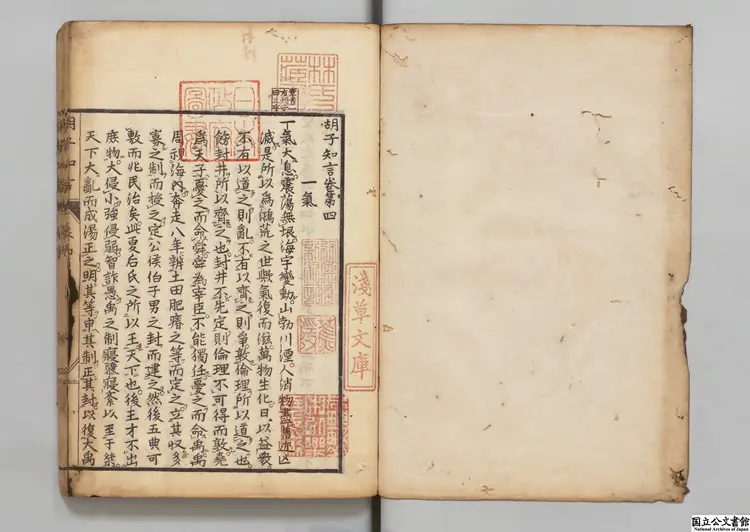 胡子知言卷第四
一氣
一氣大息震蕩無垠海宇變動山勃川湮人消物盡舊迹亡
滅是所以為鴻荒之世歟氣復而滋萬物生化日以益衆
不有以道之則亂不有以齊之則爭敦倫理所以道之也
飭封井所以齊之也封井不先定則倫理不可得而敦堯
為天子憂之而命舜舜為宰臣不能獨任憂之而命禹禹
周視海内奔走八年辨土田肥瘠之等而定之立其收多
寡之制而授之定公侯伯子男之封而建之然後五典可
敷而兆民治矣此夏后氏之所以王天下也後王才不出
庶物大侵小強侵弱智詐愚禹之制寖隳寖紊以至于桀
天下大亂而成湯正之明其等申其制正其封以復大禹
日本政府圖書
林氏藏書
淺草文庫
国立公文書館
National Archives of Japan